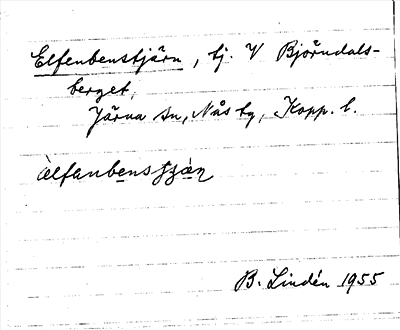 Elfenbenstjärn, tj. V Björndals-
berget,
Järna sn, Nås tg, Kopp. l.
àlfanbens
B. Lindén 1955